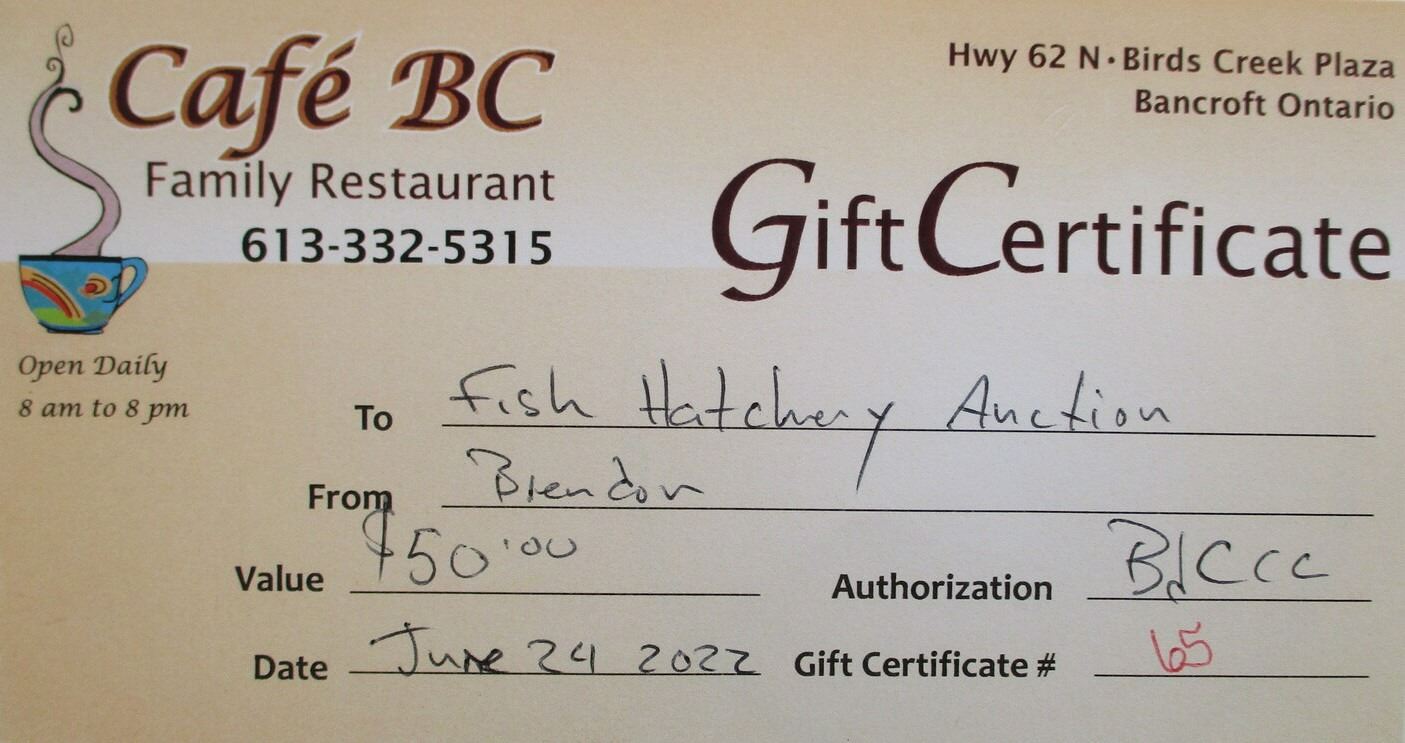 Café BC
Family Restaurant
613-332-5315
Hwy 62 N • Birds Creek Plaza
Bancroft Ontario
Gift Certificate
Open Daily
8 am to 8 pm
To Fish Hatchery Auction
From Brendon
Value $50.00
Authorization
Date June 24 2022
Gift Certificate # 65